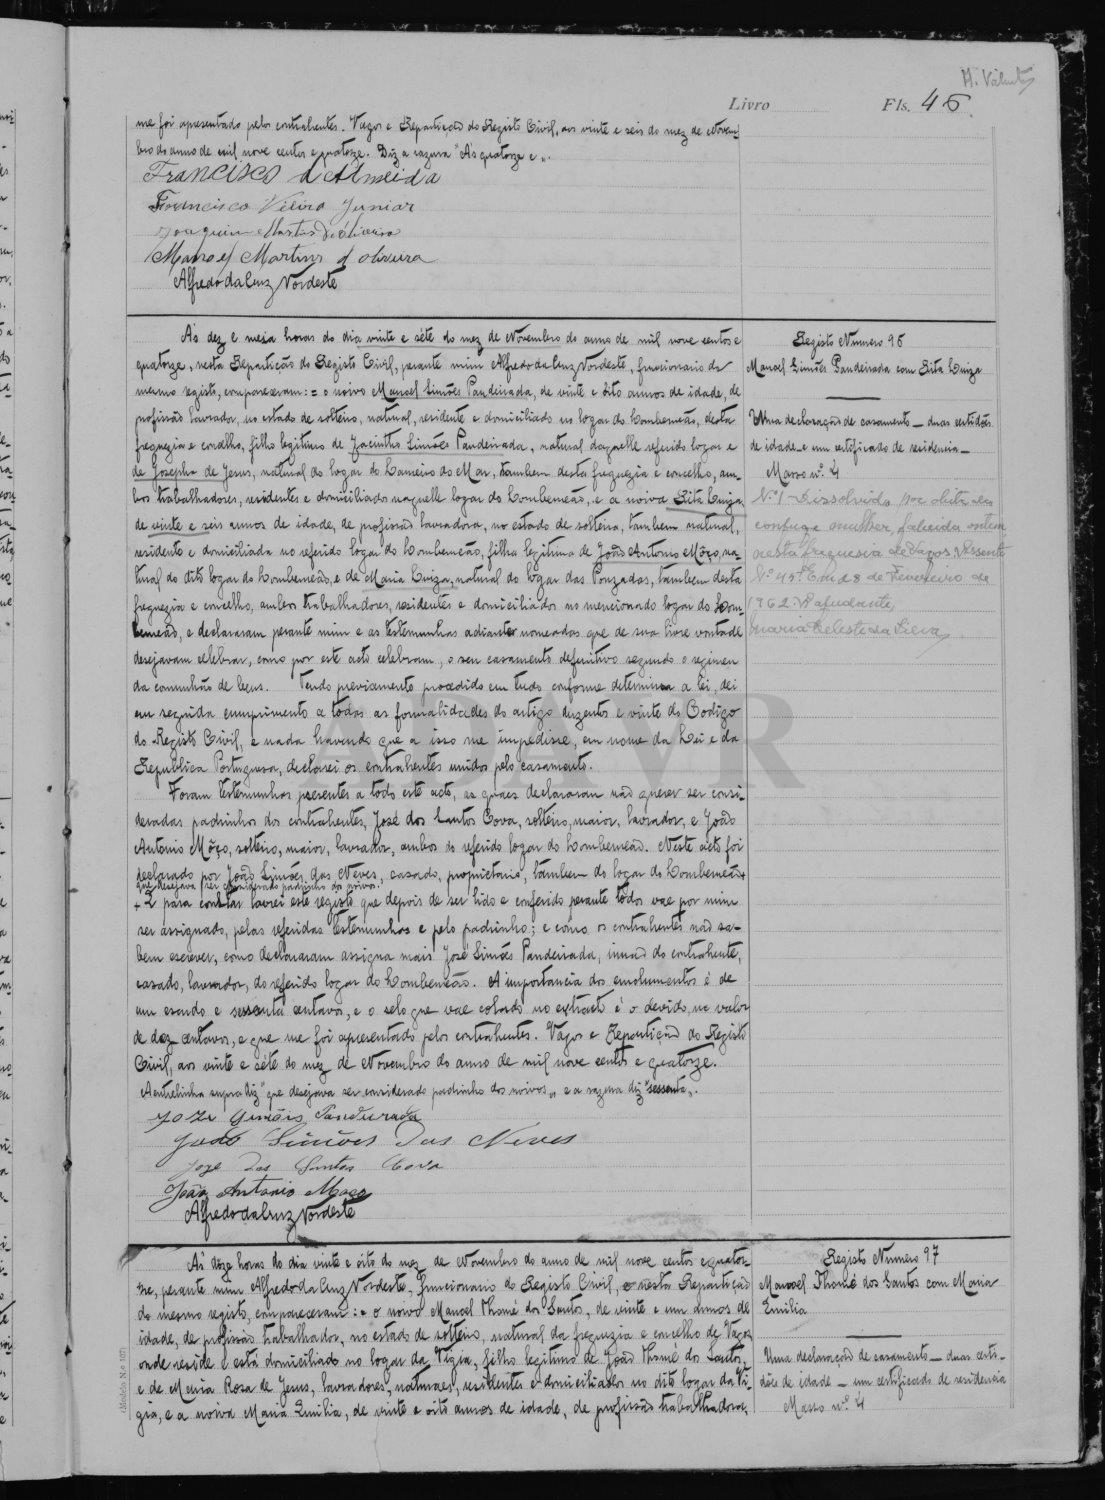 Livro Fls. 46
me foi apresentado pelos contrahentes. Vagos e Repartição do Registo Civil, aos vinte e seis do mez de Novem-
bro do anno de mil nove centos e quatorze. Diz a razura "Ás quatorze e".
Francisco d'Almeida
Francisco Vieira Junior
Joaquim Martins d'Oliveira
Manoel Martins d'olivura
Alfredo da Cruz Nordeste
Ás dez e meia horas do dia vinte e séte do mez de Novembro do anno de mil nove centos e
quatorze, nesta Repartição do Registo Civil, perante mim Alfredo da Cruz Nordeste, funcionario do
mesmo registo, compareceram:= o noivo Manoel Simões Pandeirada, de vinte e oito annos de idade, de
profissão lavrador, no estado de solteiro, natural, residente e domiciliado no logar do Lombomeão, desta
freguezia e concelho, filho legitimo de Jacintho Simões Pandeirada, natural daquelle referido logar e
de Josepha de Jesus, natural do logar do Lameiro do Mar, tambem desta freguezia e concelho, am-
bos trabalhadores, residentes e domiciliados naquelle logar do Lombomeão, e a noiva Rita Luiza,
de vinte e seis annos de idade, de profissão lavradora, no estado de solteira, tambem natural,
residente e domiciliada no referido logar do Lombomeão, filha legitima de João Antonio Môço, na-
tural do dito logar do Lombomeão, e de Maria Luiza, natural do logar das Pouzadas, tambem desta
freguezia e concelho, ambos trabalhadores, residentes e domiciliados no mencionado logar do Lom-
bomeão, e declararam perante mim e as testemunhas adiante nomeadas que de sua livre vontade
desejavam celebrar, como por este acto celebram, o seu casamento definitivo segundo o regimen
da comunhão de bens. Tendo previamente procedido em tudo conforme determina a lei, dei
em seguida cumprimento a todas as formalidades do artigo duzentos e vinte do Codigo
do Registo Civil, e nada havendo que a isso me impedisse, em nome da Lei e da
Republica Portuguesa, declarei os contrahentes unidos pelo casamento.
Foram testemunhas presentes a todo este acto, as quaes declararam não querer ser consi-
deradas padrinhos dos contrahentes, José dos Santos Cova, solteiro, maior, lavrador, e João
Antonio Môço, solteiro, maior, lavrador, ambos do referido logar do Lombomeão. Neste acto foi
declarado por João Simões das Neves, casado, proprietario, tambem do logar do Lombomeão+
que desejava ser considerado padrinho dos noivos.
+ E para constar lavrei este registo que depois de ser lido e conferido perante todos vae por mim
ser assignado, pelas referidas testemunhas e pelo padrinho; e como os contrahentes não sa-
bem escrever, como declararam assigna mais José Simões Pandeirada, irmão do contrahente,
casado, lavrador, do referido logar do Lombomeão. A importancia dos emolumentos é de
um escudo e sessenta centavos, e o selo que vae colado no extracto é o devido, no valor
de dez centavos, e que me foi apresentado pelos contrahentes. Vagos e Repartição do Registo
Civil, aos vinte e séte do mez de Novembro do anno de mil nove centos e quatorze.
A entrelinha supra diz "que desejava ser considerado padrinho dos noivos" e a razura diz "sessenta".
Joze Simõis Pandurada
João Simões Das Neves
Joze Dos Santos Cova
João Antonio Moço
Alfredo da Cruz Nordeste
Registo Numero 96
Manoel Simões Pandeirada com Rita Luiza
Uma declaração de casamento — duas certidões
de idade e um certificado de residencia —
Masso nº 4
Nº 1 - Dissolvido por obito do
conjuge mulher, falecida ontem
nesta freguesia de Vagos. Assento
Nº 45. Em 28 de Fevereiro de
1962. O ajudante,
Maria Celeste da Silva
Ás doze horas do dia vinte e oito do mez de Novembro do anno de mil nove centos e quator-
ze, perante mim Alfredo da Cruz Nordeste, funcionario do Registo Civil, e nesta Repartição
do mesmo registo, compareceram:= o noivo Manoel Thomé dos Santos, de vinte e um annos de
idade, de profissão trabalhador, no estado de solteiro, natural da freguezia e concelho de Vagos
onde reside e está domiciliado no logar da Vigia, filho legitimo de João Thomé dos Santos,
e de Maria Rosa de Jesus, lavradores, naturaes, residentes e domiciliados no dito logar da Vi-
gia, e a noiva Maria Emilia, de vinte e oito annos de idade, de profissão trabalhadora,
Registo Numero 97
Manoel Thomé dos Santos com Maria
Emilia
Uma declaração de casamento — duas certi-
dões de idade — um certificado de residencia
Masso nº 4